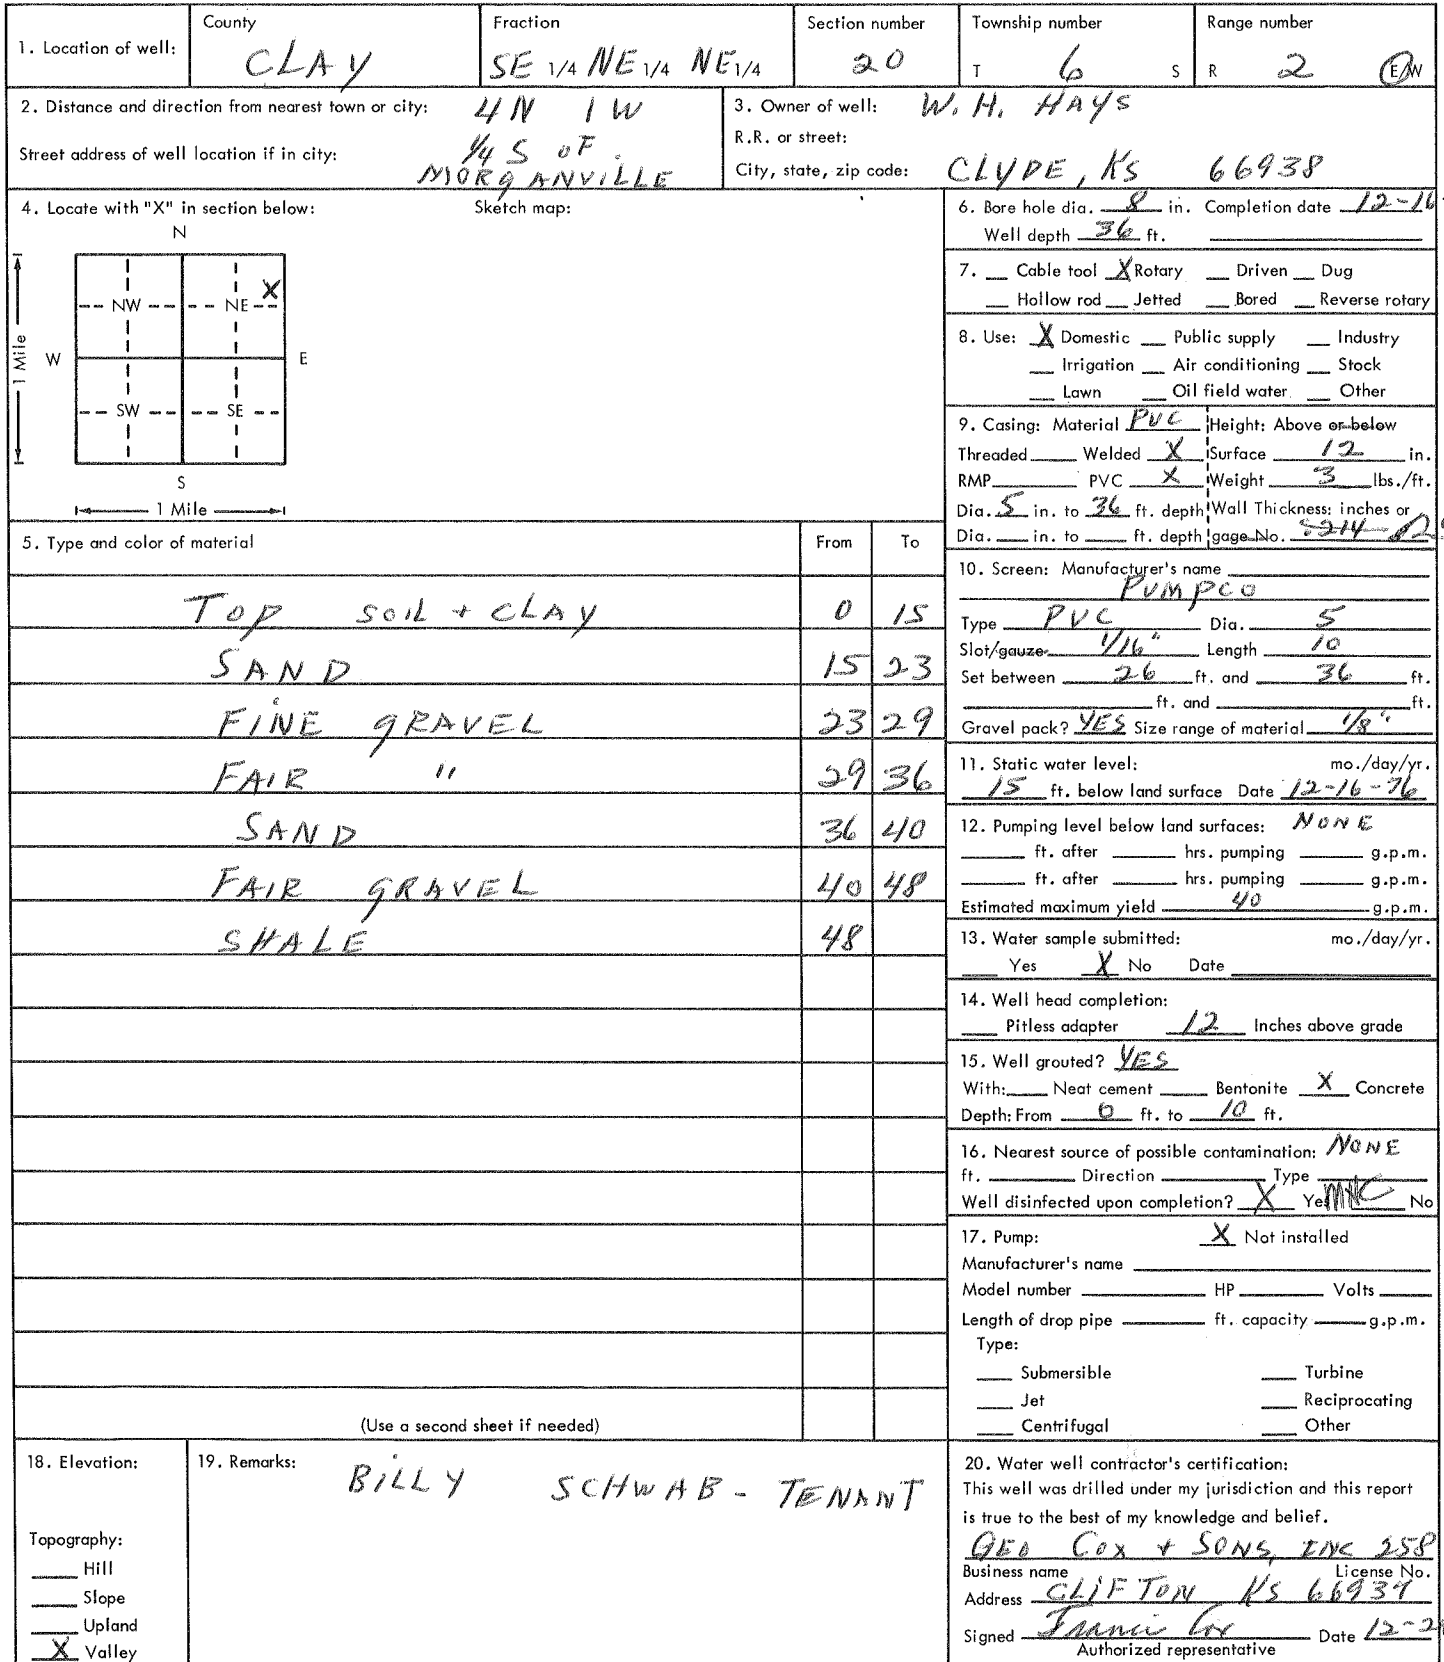 County Fraction Section number Township number Range number
1. Location of well: CLAY SE 1/4 NE 1/4 NE 1/4 20 T 6 S R 2 E/W
2. Distance and direction from nearest town or city: 4N 1W 3. Owner of well: W.H. HAYS
R.R. or street:
Street address of well location if in city: 1/4 S OF
MORGANVILLE City, state, zip code: CLYDE, KS 66938
4. Locate with "X" in section below: Sketch map:
N
X
NW NE
1 Mile W E
SW SE
S
1 Mile
5. Type and color of material From To
TOP SOIL + CLAY 0 15
SAND 15 23
FINE GRAVEL 23 29
FAIR " 29 36
SAND 36 40
FAIR GRAVEL 40 48
SHALE 48
(Use a second sheet if needed)
6. Bore hole dia. 8 in. Completion date 12-16
Well depth 36 ft.
7. Cable tool X Rotary Driven Dug
Hollow rod Jetted Bored Reverse rotary
8. Use: X Domestic Public supply Industry
Irrigation Air conditioning Stock
Lawn Oil field water Other
9. Casing: Material PVC Height: Above or below
Threaded Welded X Surface 12 in.
RMP PVC X Weight 3 lbs./ft.
Dia. 5 in. to 36 ft. depth Wall Thickness: inches or
Dia. in. to ft. depth gage No. .214
10. Screen: Manufacturer's name
PUMPCO
Type PVC Dia. 5
Slot/gauze 1/16" Length 10
Set between 26 ft. and 36 ft.
ft. and ft.
Gravel pack? YES Size range of material 1/8"
11. Static water level: mo./day/yr.
15 ft. below land surface Date 12-16-76
12. Pumping level below land surfaces: NONE
ft. after hrs. pumping g.p.m.
ft. after hrs. pumping g.p.m.
Estimated maximum yield 40 g.p.m.
13. Water sample submitted: mo./day/yr.
Yes X No Date
14. Well head completion:
Pitless adapter 12 Inches above grade
15. Well grouted? YES
With: Neat cement Bentonite X Concrete
Depth: From 0 ft. to 10 ft.
16. Nearest source of possible contamination: NONE
ft. Direction Type
Well disinfected upon completion? X Yes No
17. Pump: X Not installed
Manufacturer's name
Model number HP Volts
Length of drop pipe ft. capacity g.p.m.
Type:
Submersible Turbine
Jet Reciprocating
Centrifugal Other
18. Elevation: 19. Remarks: BILLY SCHWAB - TENANT
Topography:
Hill
Slope
Upland
X Valley
20. Water well contractor's certification:
This well was drilled under my jurisdiction and this report
is true to the best of my knowledge and belief.
GEO COX + SONS, INC 258
Business name License No.
Address CLIFTON KS 66937
Signed Francis Cox Date 12-2
Authorized representative